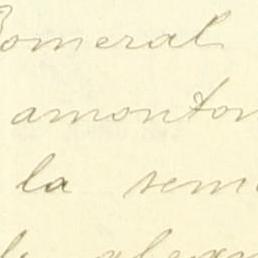 Pomeral
amonton
la sem